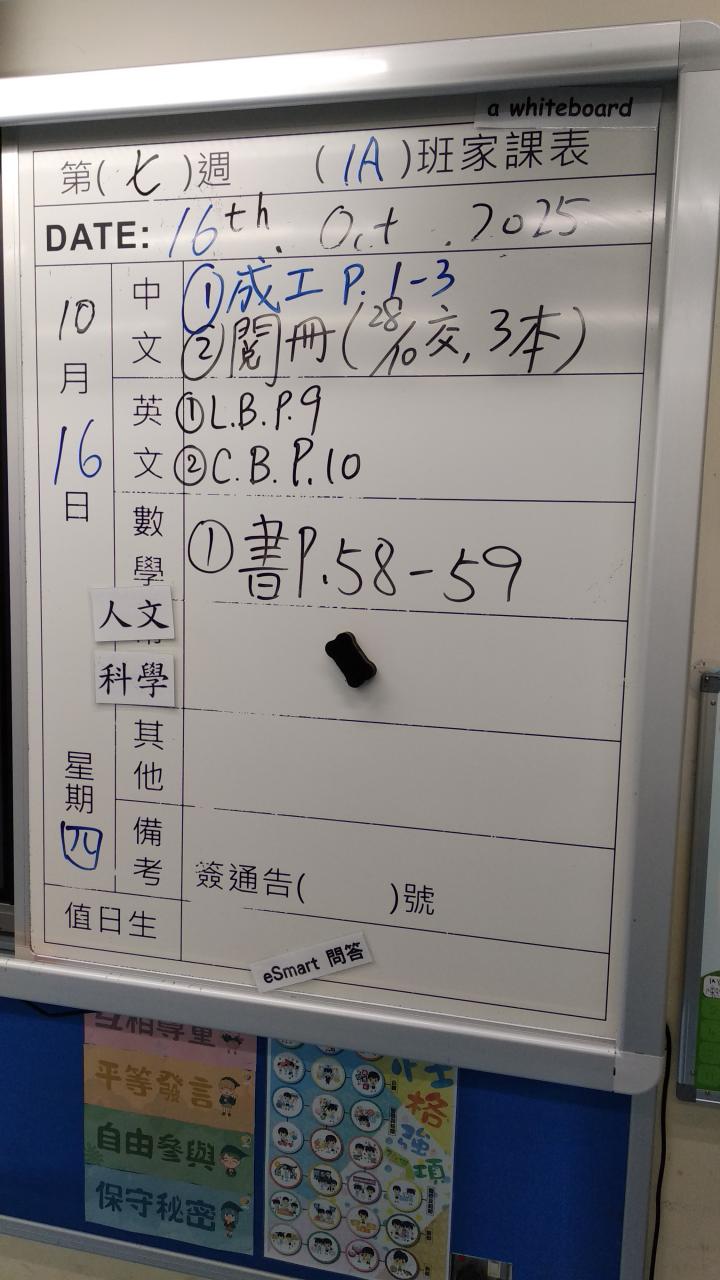 a whiteboard
第(七)週 (1A)班家課表
DATE: 16th. Oct. 2025
10月16日
星期四
中文
①成工 P. 1-3
②閱冊(28/10交, 3本)
英文
①L.B.P.9
②C.B.P.10
數學
①書P.58-59
人文
科學
其他
備考
簽通告( )號
值日生
eSmart 問答
互相尊重
平等發言
自由參與
保守秘密
格
強
項